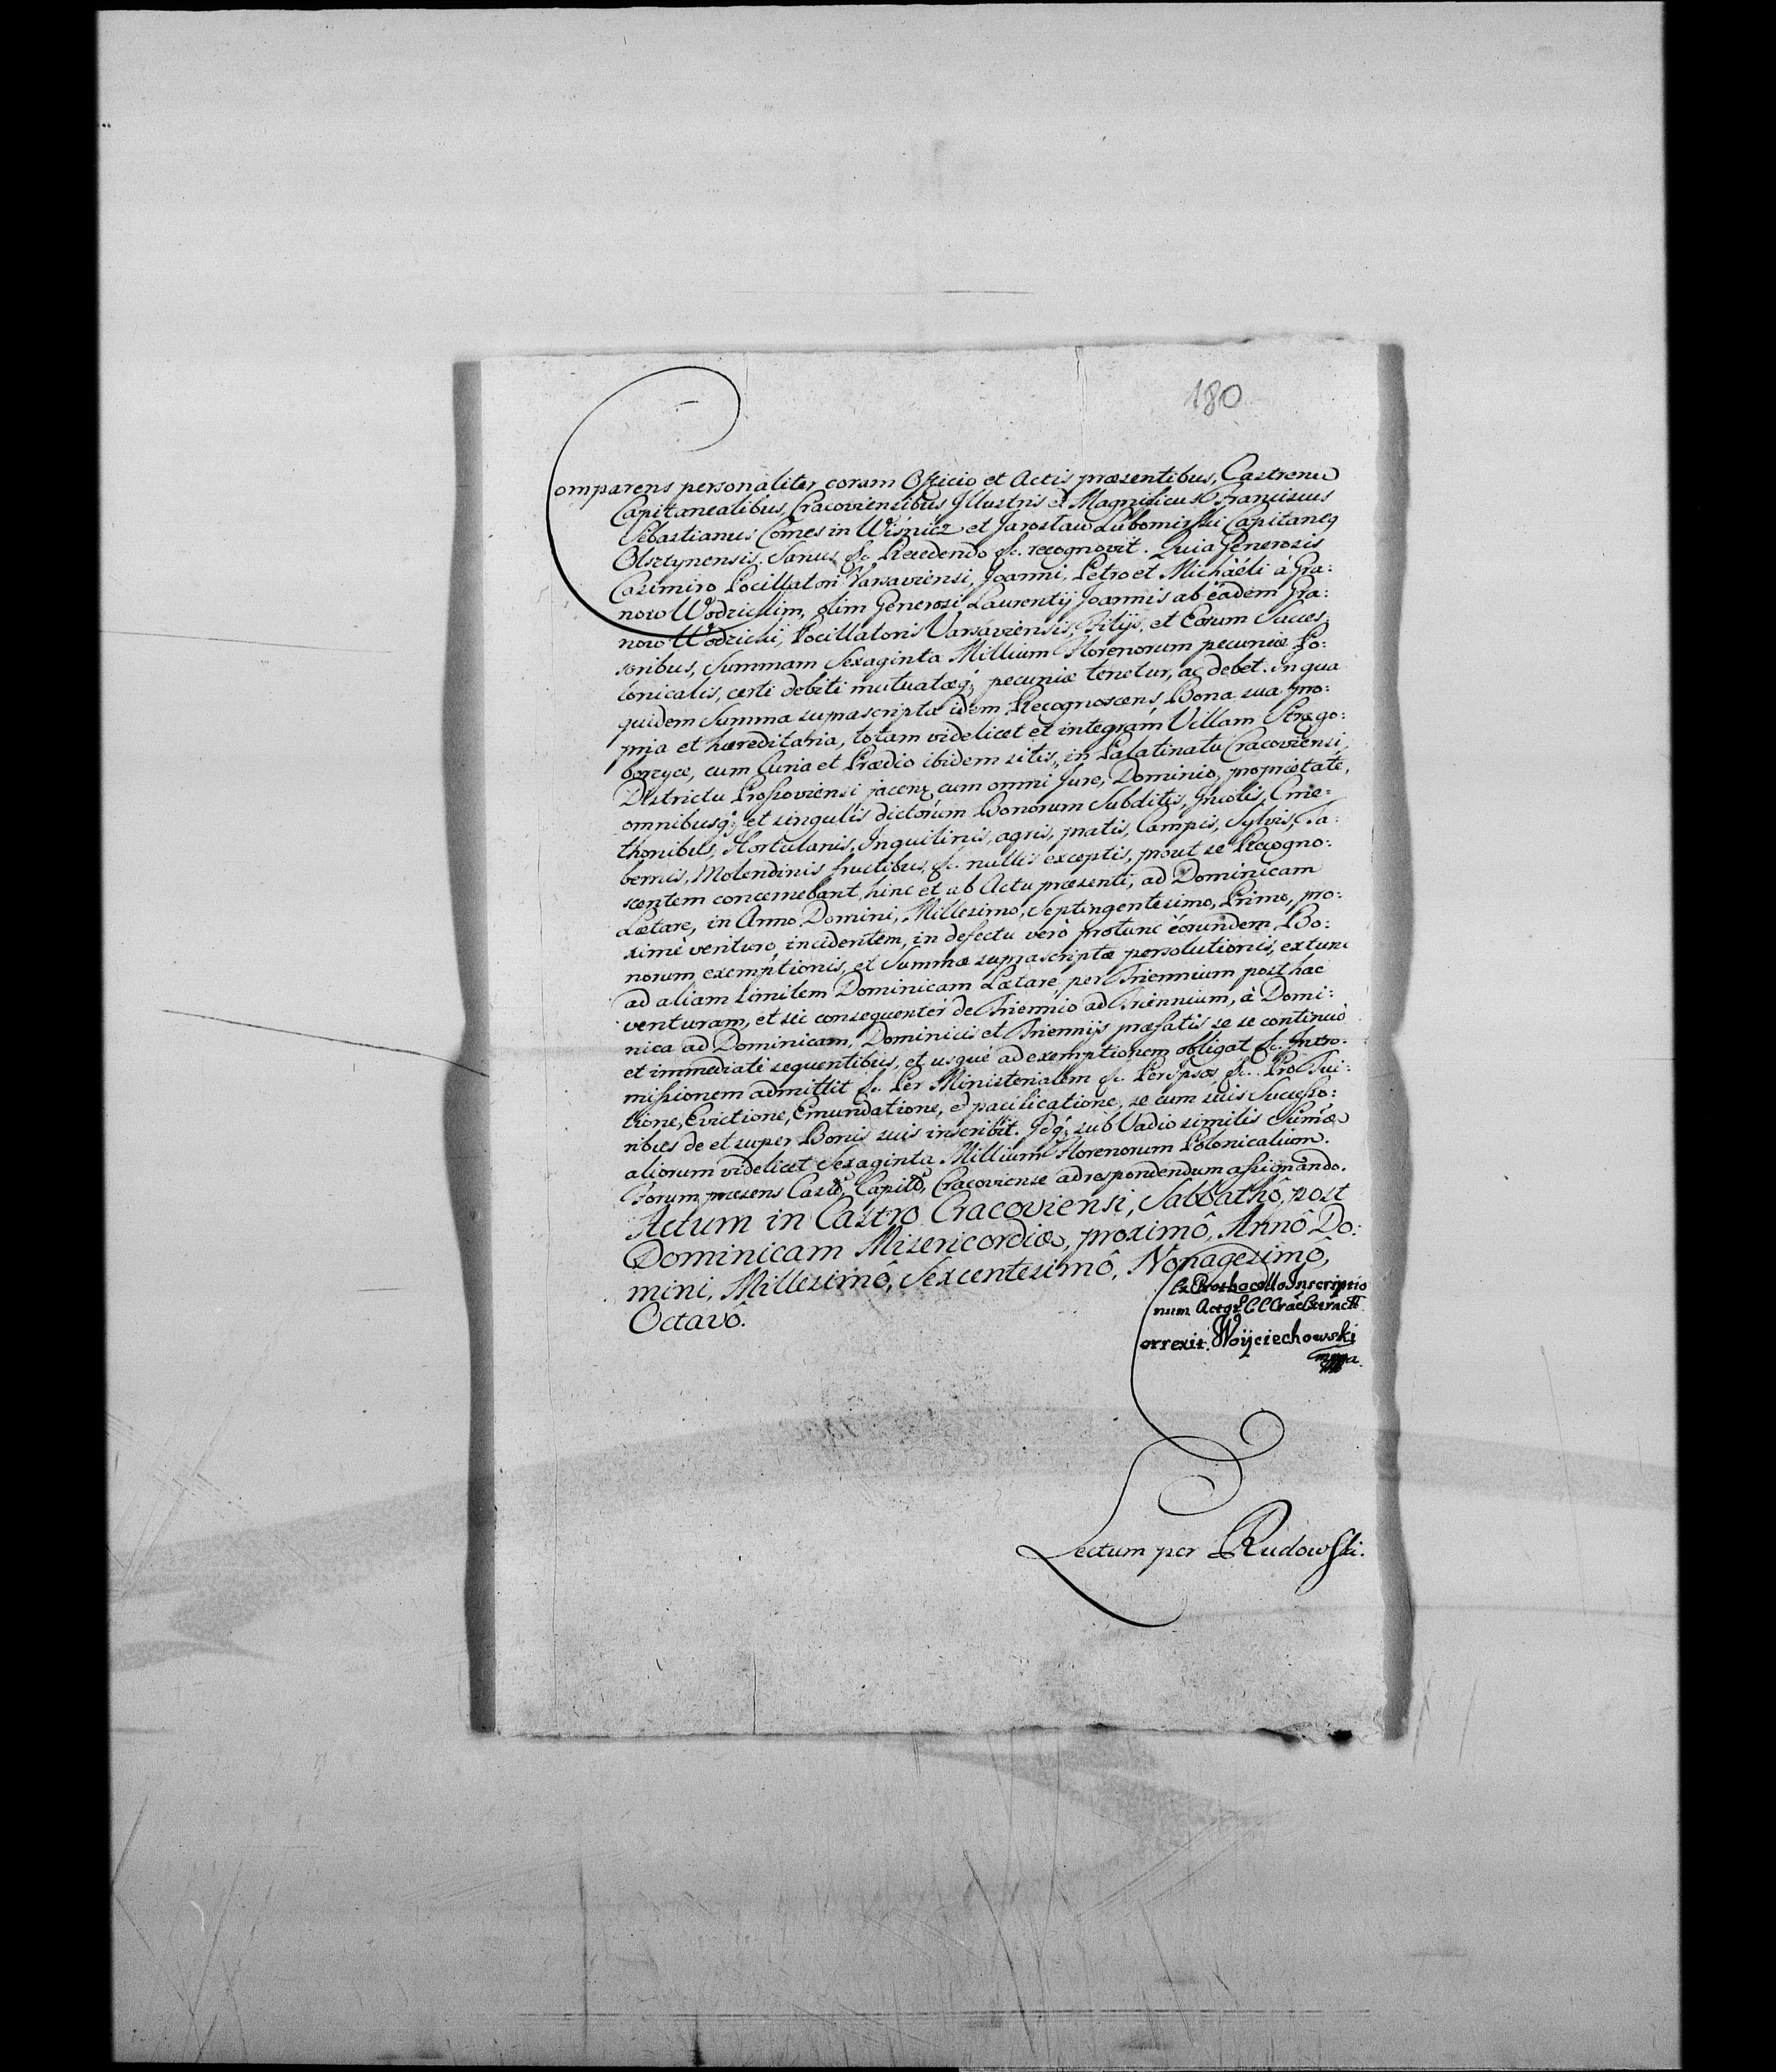 180
Comparens personaliter coram Officio et Actis præsentibus, Castrensi
Capitanealibus, Cracoviensibus Illustris et Magnificus Franciscus
Sebastianus Comes in Wiśnicz et Jarosław Lubomirski Capitaneq
Olsztynensis. Sanus &c. Recedendo &c. recognovit. Quia Generosis
Casimiro Pocillatori Varsaviensi, Joanni, Petro et Michaëli à Gra:
nowo Wodzickim, olim Generosi Laurentij Joannis ab eâdem Gra:
nowo Wodzicki, Pocillatoris Varsaviensis, Filijs, et Eorum Succes:
soribus, Summam Sexaginta Millium Florenorum pecuniæ Po:
lonicalis, certi debiti mutuatæq; pecuniæ tenetur, ac debet. In qua
quidem Summa suprascripta idem Recognoscens Bona sua pro:
pria et hæreditaria, totam videlicet et integram Villam Stręgo:
borzyce, cum Curia et Prædio ibidem sitis, in Palatinatu Cracoviensi
Districtu Proszoviensi jacen, cum omni Jure, Dominio, proprietate,
omnibusq; et singulis dictorum Bonorum Subditis, Incolis, Cme:
thonibus, Hortulanis, Inquilinis, agris, pratis, Campis, Sylvis, Ta:
bernis, Molendinis fructibus, &c. nullis exceptis, prout se Recogno:
scentem concernebant, hinc et ab Actu præsenti, ad Dominicam
Lætare, in Anno Domini, Millesimo, Septingentesimo, Primo, pro:
ximè venturo, incidentem, in defectu verò protunc eorundem Bo:
norum exemptionis, et Summæ suprascriptæ persolutionis, extunc
ad aliam similem Dominicam Lætare, per Triennium post hac
venturam, et sic consequenter de Triennio ad Triennium, à Domi:
nica ad Dominicam, Dominicis et Triennijs præfatis se se continuò
et immediatè sequentibus, et usquè ad exemptionem obligat &c. Intro:
missionem admittit &c. Per Ministerialem &c. Per ipsos &c. Pro Tui:
tione, Evictione, Emundatione, et pacificatione, se cum suis Successo:
ribus de et super Bonis suis inscribit. Idq; sub Vadio similis Summæ
aliorum videlicet Sexaginta Millium Florenorum Polonicalium.
Forum præsens Castr, Capit, Cracoviense ad respondendum assignando.
Actum in Castro Cracoviensi, Sabbathô, post
Dominicam Misericordiæ, proximô, Annô Do:
mini, Millesimô, Sexcentesimô, Nonagesimô,
Octavô.
Ex Prothocollo Inscriptio
num Actor C C Crac Extract
Correxit. Woÿciechowski
mppa.
Lectum per Rudowski.